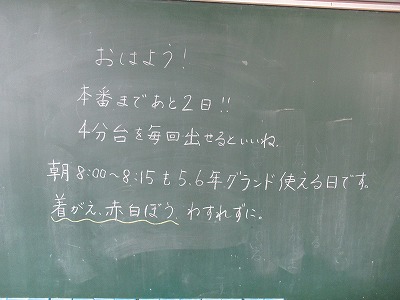 おはよう!
本番まであと2日!!
4分台を毎回出せるといいね。
朝8:00〜8:15も5、6年グランド使える日です。
着がえ、赤白ぼう、わすれずに。